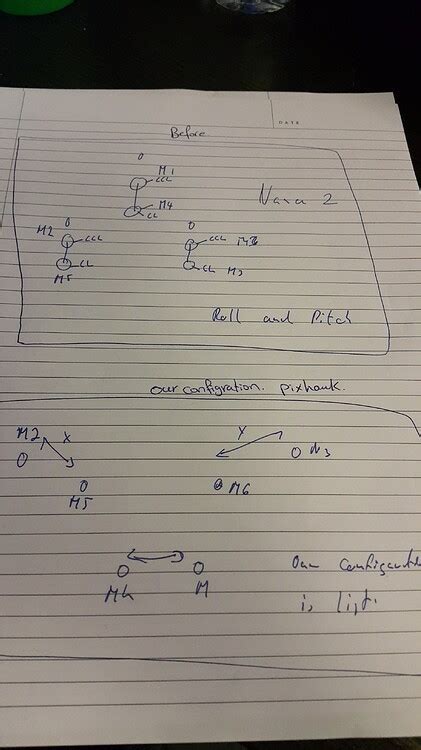 DATE
Before
0
M1
CCL
M4
CL
Naza 2
0
M2
CCL
CL
M5
0
CCL
CL
M3
Roll and Pitch
our configration. pixhauk.
M2 X
M5
Y
M3
M6
M4
M
Our Configuration
is